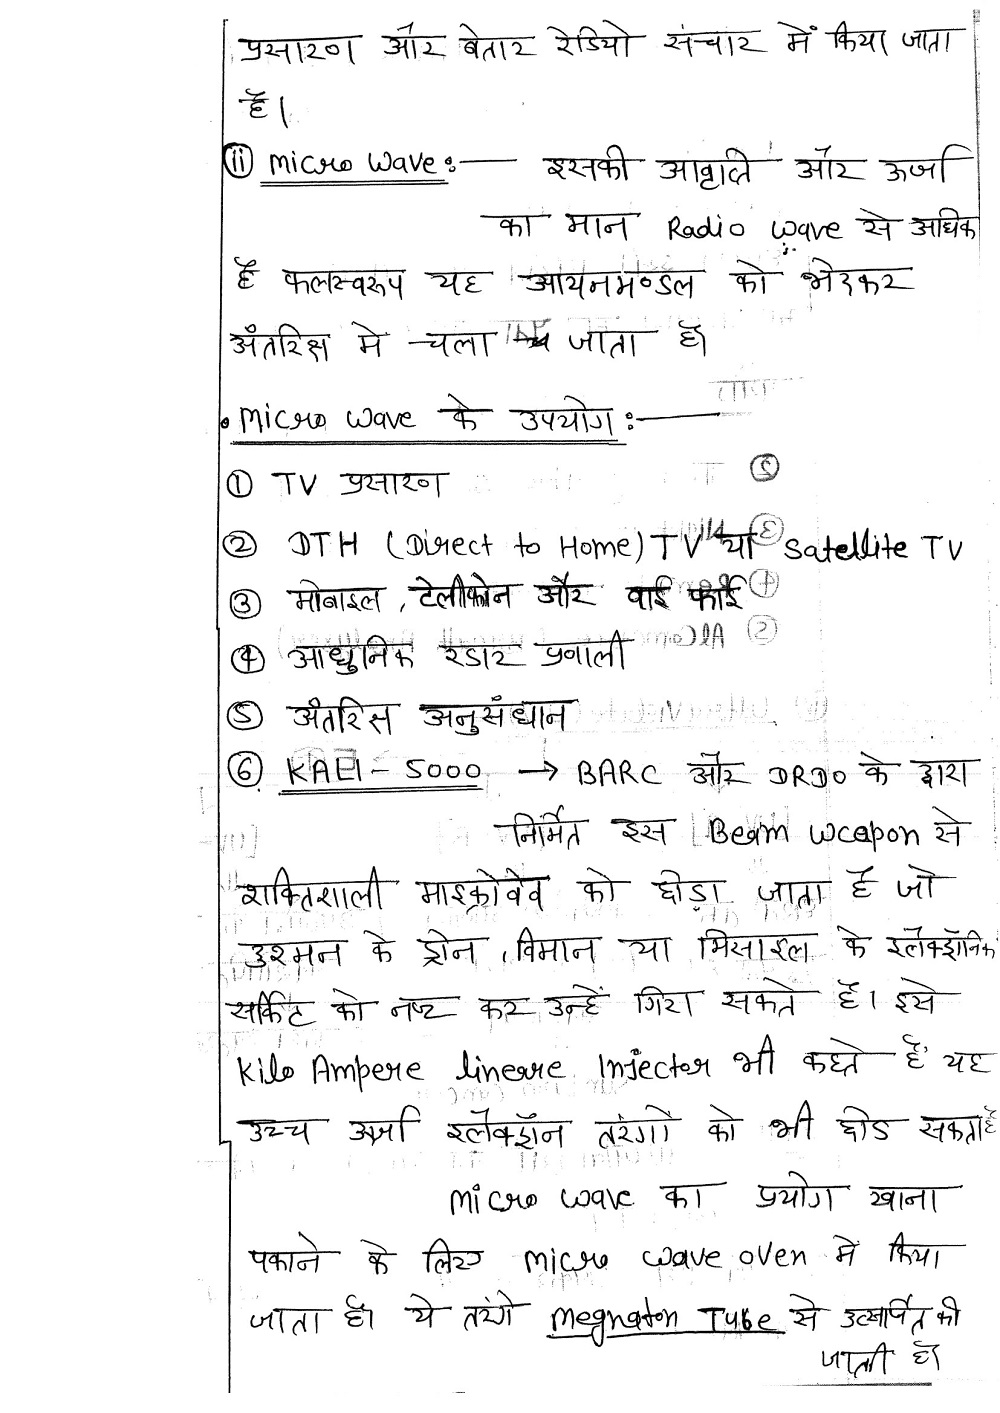 प्रसारण और बेतार रेडियो संचार में किया जाता
है।
(ii) Micro Wave :— इसकी आवृति और ऊर्जा
का मान Radio Wave से अधिक
है फलस्वरूप यह आयनमण्डल को भेदकर
अंतरिक्ष मे चला जाता है।
• Micro Wave के उपयोग :—
① TV प्रसारण
② DTH (Direct to Home) TV या Satellite TV
③ मोबाइल, टेलीफोन और वाई फाई
④ आधुनिक रडार प्रनाली
⑤ अंतरिस अनुसंधान
⑥ KALI - 5000 → BARC और DRDO के द्वारा
निर्मित इस Beam Weapon से
शक्तिशाली माइक्रोवेव को छोड़ा जाता है जो
दुश्मन के ड्रोन, विमान या मिसाइल के इलैक्ट्रॉनिक
सर्किट को नष्ट कर उन्हें गिरा सकते है। इसे
Kilo Ampere linerre Injector भी कहते है, यह
उच्च ऊर्जा इलैक्ट्रॉन तरंगों को भी छोड सकता है
Micro wave का प्रयोग खाना
पकाने के लिए Micro wave oven मे किया
जाता है। ये तरंगे Megnaton Tube से उत्सर्पित की
जाती है।